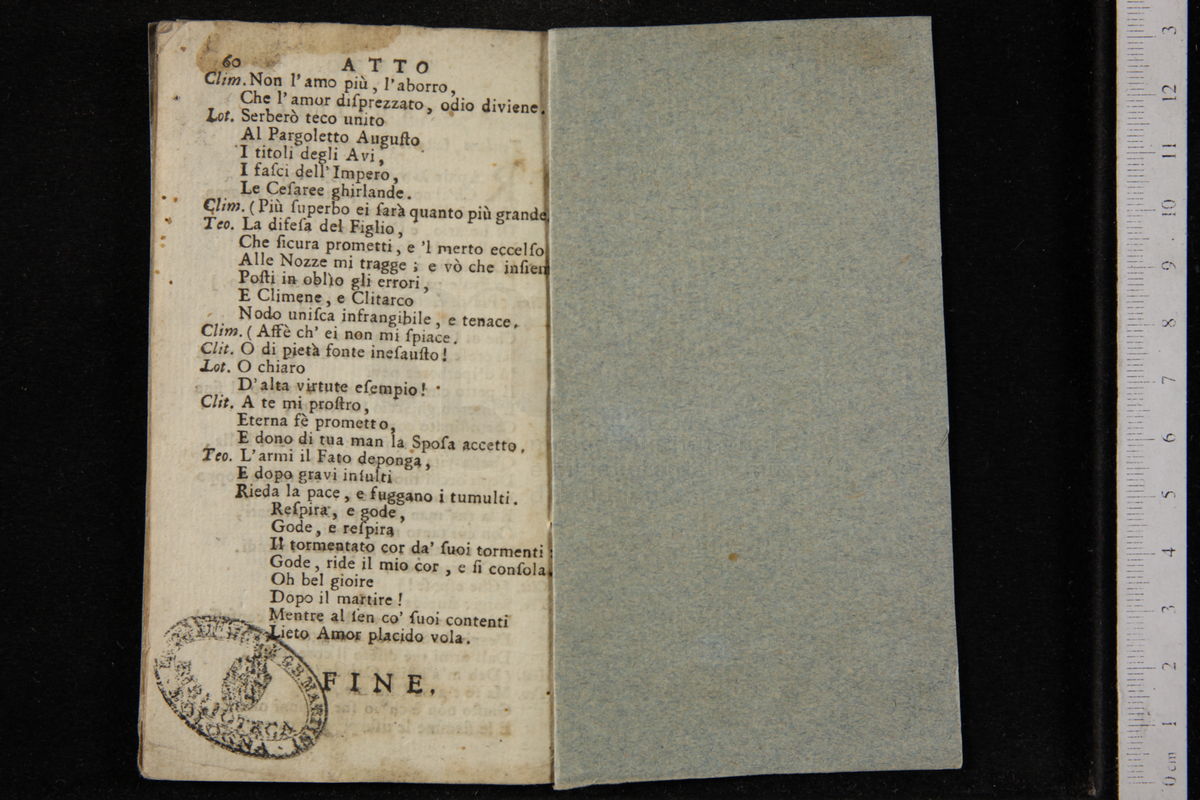 60 ATTO
Clim. Non l'amo più, l'aborro,
Che l'amor diſprezzato, odio diviene.
Lot. Serberò teco unito
Al Pargoletto Auguſto
I titoli degli Avi,
I faſci dell'Impero,
Le Ceſaree ghirlande.
Clim. (Più ſuperbo ei ſarà quanto più grande
Teo. La difeſa del Figlio,
Che ſicura prometti, e 'l merto eccelſo
Alle Nozze mi tragge; e vò che inſiem
Poſti in oblìo gli errori,
E Climene, e Clitarco
Nodo uniſca infrangibile, e tenace.
Clim. (Affè ch' ei non mi ſpiace.
Clit. O di pietà fonte ineſauſto!
Lot. O chiaro
D'alta virtute eſempio!
Clit. A te mi proſtro,
Eterna fè prometto,
E dono di tua man la Spoſa accetto.
Teo. L'armi il Fato deponga,
E dopo gravi inſulti
Rieda la pace, e fuggano i tumulti.
Reſpira, e gode,
Gode, e reſpira
Il tormentato cor da' ſuoi tormenti:
Gode, ride il mio cor, e ſi conſola.
Oh bel gioire
Dopo il martire!
Mentre al ſen co' ſuoi contenti
Lieto Amor placido vola.
FINE.
G.B. MARTINI
BIBLIOTECA
BOLOGNA
13
12
11
10
9
8
7
6
5
4
3
2
1
0 cm